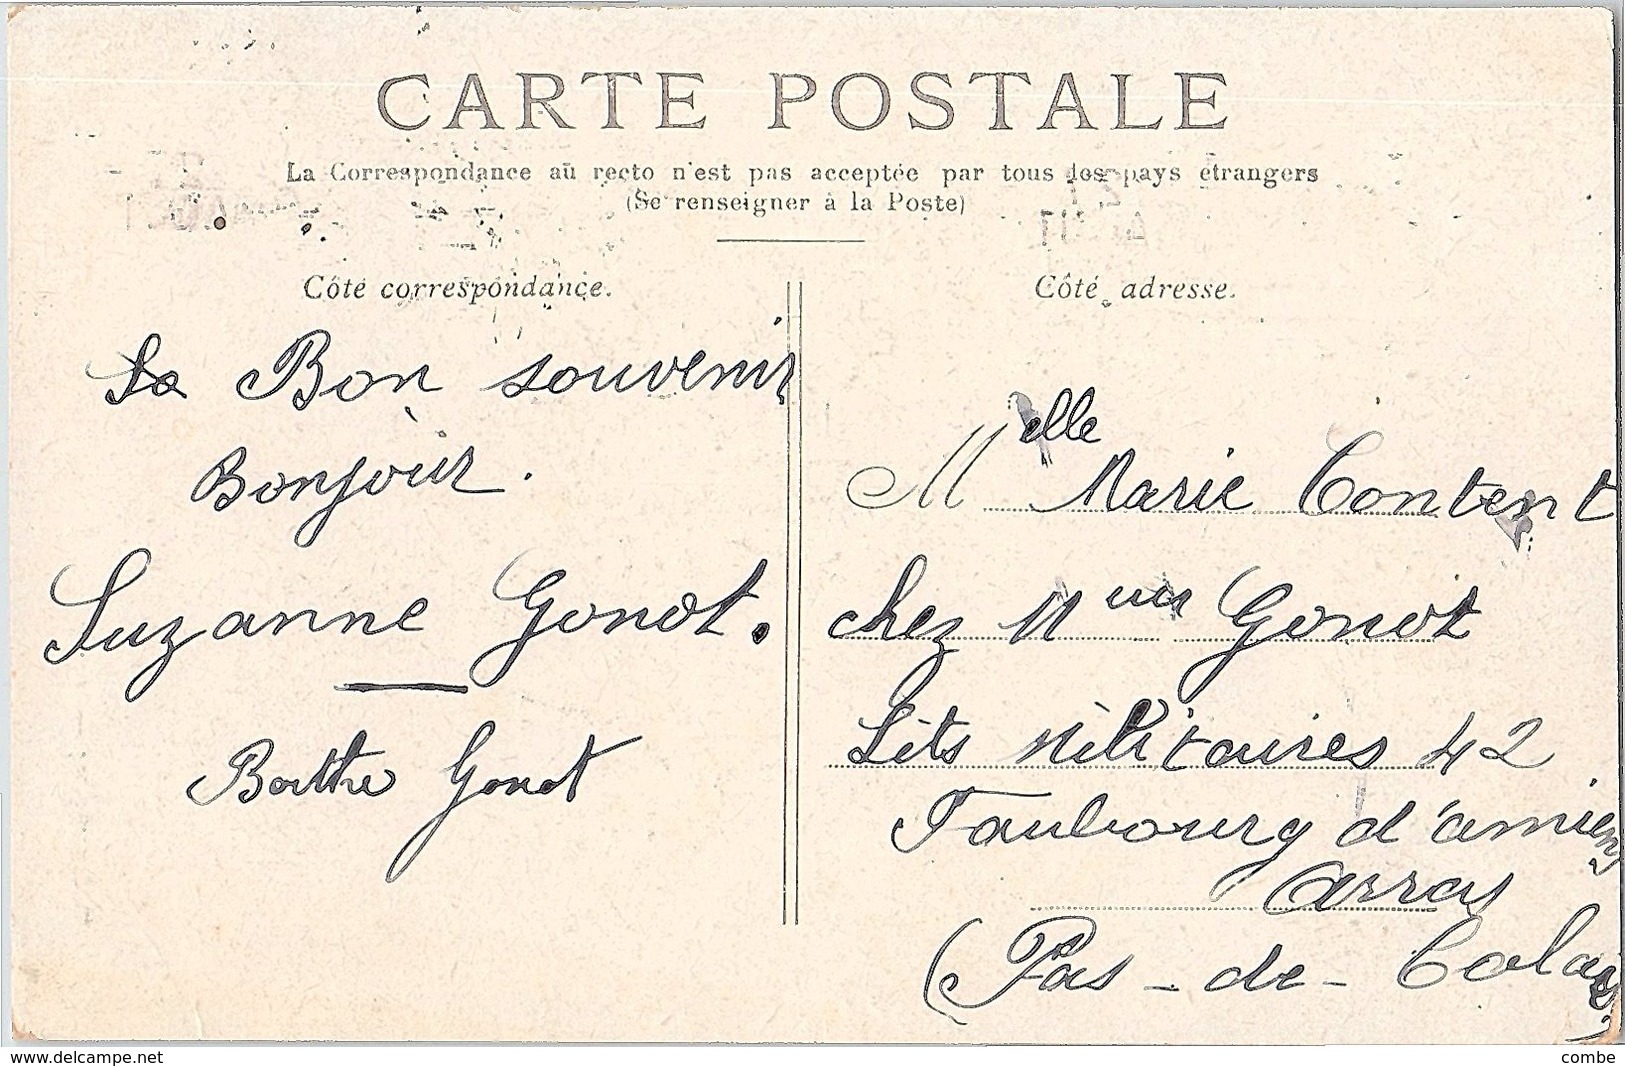 CARTE POSTALE
La Correspondance au recto n'est pas acceptée par tous les pays étrangers
(Se renseigner à la Poste)
Côté correspondance.
Bon souvenir
Bonjour.
Suzanne Gonot.
Berthe Gonot
Côté adresse.
Melle Marie Content
chez Mme Gonot
Lits militaires 42
Faubourg d'amiens
Arras
(Pas-de-Calais)
www.delcampe.net
combe